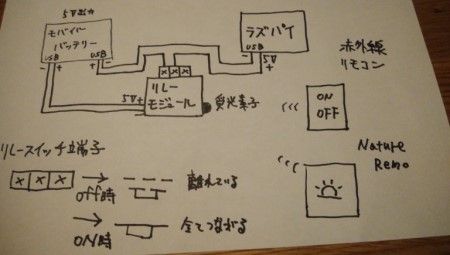 5V出力
モバイル
バッテリー
USB
USB
- +
- +
ラズパイ
USB
- 5V
+
×××
5V+
-
リレー
モジュール
受光素子
赤外線
リモコン
ON
OFF
Nature
Remo
リレースイッチ端子
××× → 離れている
off時
→ 全てつながる
ON時